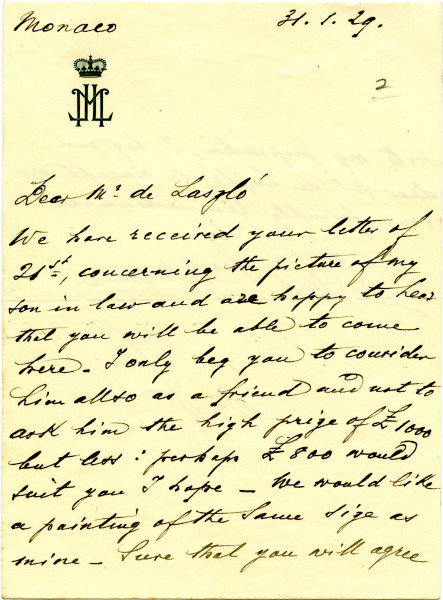 Monaco 31. 1. 29.
2
Dear Mr. de László
We have received your letter of
21st, concerning the picture of my
son in law and are happy to hear
that you will be able to come
here – I only beg you to consider
him allso as a friend and not to
ask him the high prize of £1000
but less: perhaps £800 would
suit you I hope – We would like
a painting of the same size as
mine – Sure that you will agree